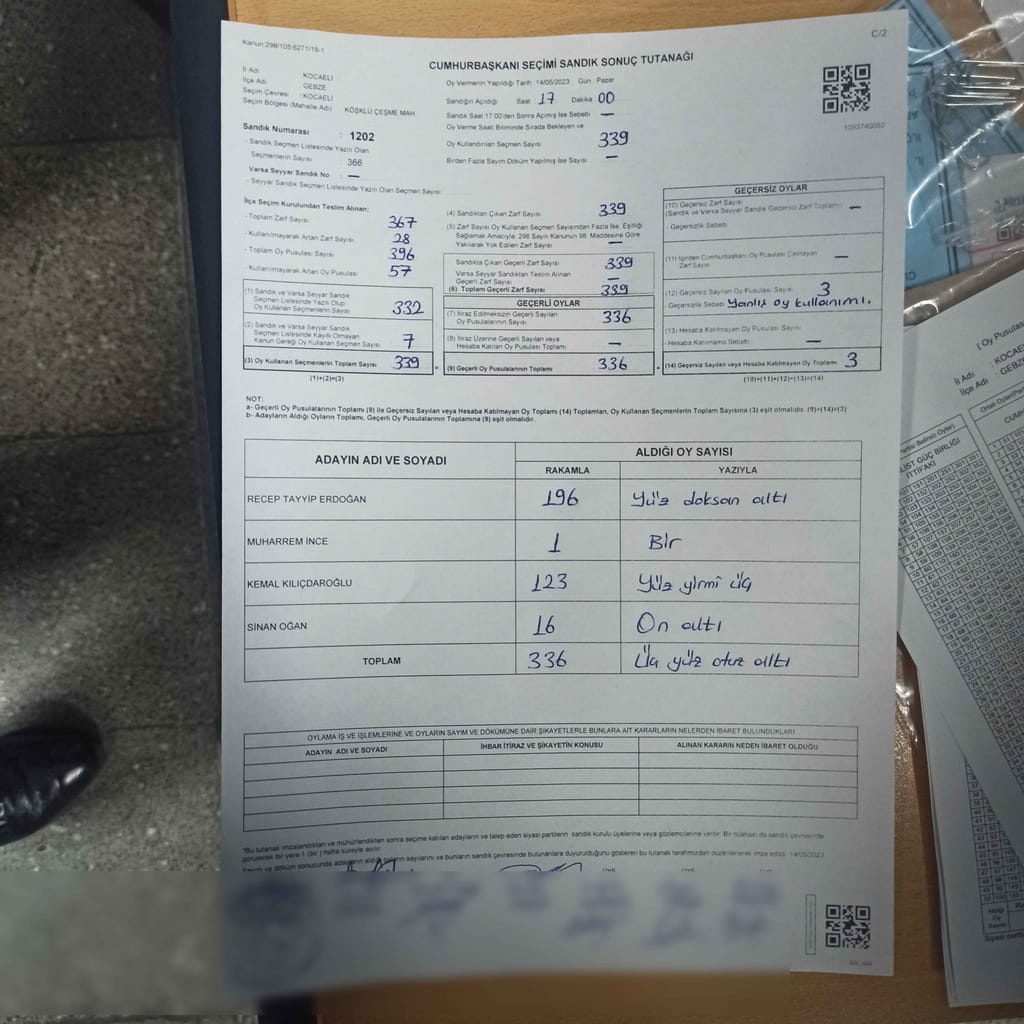 Kanun:298/105.6271/18-1
C/2
CUMHURBAŞKANI SEÇİMİ SANDIK SONUÇ TUTANAĞI
İl Adı KOCAELİ
İlçe Adı : GEBZE
Seçim Çevresi : KOCAELİ
Seçim Bölgesi (Mahalle Adı) KÖŞKLÜ ÇEŞME MAH
Sandık Numarası : 1202
- Sandık Seçmen Listesinde Yazılı Olan
Seçmenlerin Sayısı : 366
Varsa Seyyar Sandık No : —
- Seyyar Sandık Seçmen Listesinde Yazılı Olan Seçmen Sayısı
Oy Vermenin Yapıldığı Tarih :14/05/2023 Gün : Pazar
Sandığın Açıldığı Saat 17 Dakika 00
Sandık Saat 17 00'den Sonra Açılmış İse Sebebi —
Oy Verme Saati Bitiminde Sırada Bekleyen ve
Oy Kullandırılan Seçmen Sayısı 339
Birden Fazla Sayım Döküm Yapılmış İse Sayısı —
İlçe Seçim Kurulundan Teslim Alınan:
- Toplam Zarf Sayısı 367
- Kullanılmayarak Artan Zarf Sayısı 28
- Toplam Oy Pusulası Sayısı 396
- Kullanılmayarak Artan Oy Pusulası 57
(1) Sandık ve Varsa Seyyar Sandık
Seçmen Listesinde Yazılı Olup
Oy Kullanan Seçmenlerin Sayısı 332
(2) Sandık ve Varsa Seyyar Sandık
Seçmen Listesinde Kayıtlı Olmayan
Kanun Gereği Oy Kullanan Seçmen Sayısı 7
(3) Oy Kullanan Seçmenlerin Toplam Sayısı 339
(1)+(2)=(3)
(4) Sandıktan Çıkan Zarf Sayısı 339
(5) Zarf Sayısı Oy Kullanan Seçmen Sayısından Fazla İse, Eşitliği
Sağlamak Amacıyla, 298 Sayılı Kanunun 98. Maddesine Göre
Yakılarak Yok Edilen Zarf Sayısı —
Sandıkta Çıkan Geçerli Zarf Sayısı 339
Varsa Seyyar Sandıktan Teslim Alınan
Geçerli Zarf Sayısı —
(6) Toplam Geçerli Zarf Sayısı 339
GEÇERLİ OYLAR
(7) İtiraz Edilmeksizin Geçerli Sayılan
Oy Pusulalarının Sayısı 336
(8) İtiraz Üzerine Geçerli Sayılan veya
Hesaba Katılan Oy Pusulası Toplamı —
(9) Geçerli Oy Pusulalarının Toplamı 336
GEÇERSİZ OYLAR
(10) Geçersiz Zarf Sayısı
(Sandık ve Varsa Seyyar Sandık Geçersiz Zarf Toplamı) —
- Geçersizlik Sebebi
(11) İçinden Cumhurbaşkanı Oy Pusulası Çıkmayan
Zarf Sayısı —
(12) Geçersiz Sayılan Oy Pusulası Sayısı 3
- Geçersizlik Sebebi Yanlış oy kullanımı.
(13) Hesaba Katılmayan Oy Pusulası Sayısı
- Hesaba Katılmama Sebebi —
(14) Geçersiz Sayılan veya Hesaba Katılmayan Oy Toplamı 3
(10)+(11)+(12)+(13)=(14)
NOT:
a- Geçerli Oy Pusulalarının Toplamı (9) ile Geçersiz Sayılan veya Hesaba Katılmayan Oy Toplamı (14) Toplamları, Oy Kullanan Seçmenlerin Toplam Sayısına (3) eşit olmalıdır. (9)+(14)=(3)
b- Adayların Aldığı Oyların Toplamı, Geçerli Oy Pusulalarının Toplamına (9) eşit olmalıdır.
ADAYIN ADI VE SOYADI ALDIĞI OY SAYISI
RAKAMLA YAZIYLA
RECEP TAYYİP ERDOĞAN 196 Yüz doksan altı
MUHARREM İNCE 1 Bir
KEMAL KILIÇDAROĞLU 123 Yüz yirmi üç
SİNAN OĞAN 16 On altı
TOPLAM 336 Üç yüz otuz altı
OYLAMA İŞ VE İŞLEMLERİNE VE OYLARIN SAYIM VE DÖKÜMÜNE DAİR ŞİKAYETLERLE BUNLARA AİT KARARLARIN NELERDEN İBARET BULUNDUKLARI
ADAYIN ADI VE SOYADI İHBAR İTİRAZ VE ŞİKAYETİN KONUSU ALINAN KARARIN NEDEN İBARET OLDUĞU
"Bu tutanak imzalandıktan ve mühürlendikten sonra seçime katılan adayların ve talep eden siyasi partilerin sandık kurulu üyelerine veya gözlemcilerine verilir. Bir nüshası da sandık çevresinde
görülecek bir yere 1 (bir) hafta süreyle asılır.
Sayım ve döküm sonucunda adayların aldığı oyların sayılarını ve bunların sandık çevresinde bulunanlara duyurulduğunu gösteren bu tutanak tarafımızdan düzenlenerek imza edildi. 14/05/2023
ÜYE ÜYE ÜYE
( Oy Pusulası
İl Adı : KOCAELİ
İlçe Adı : GEBZE
İTTİFAKI